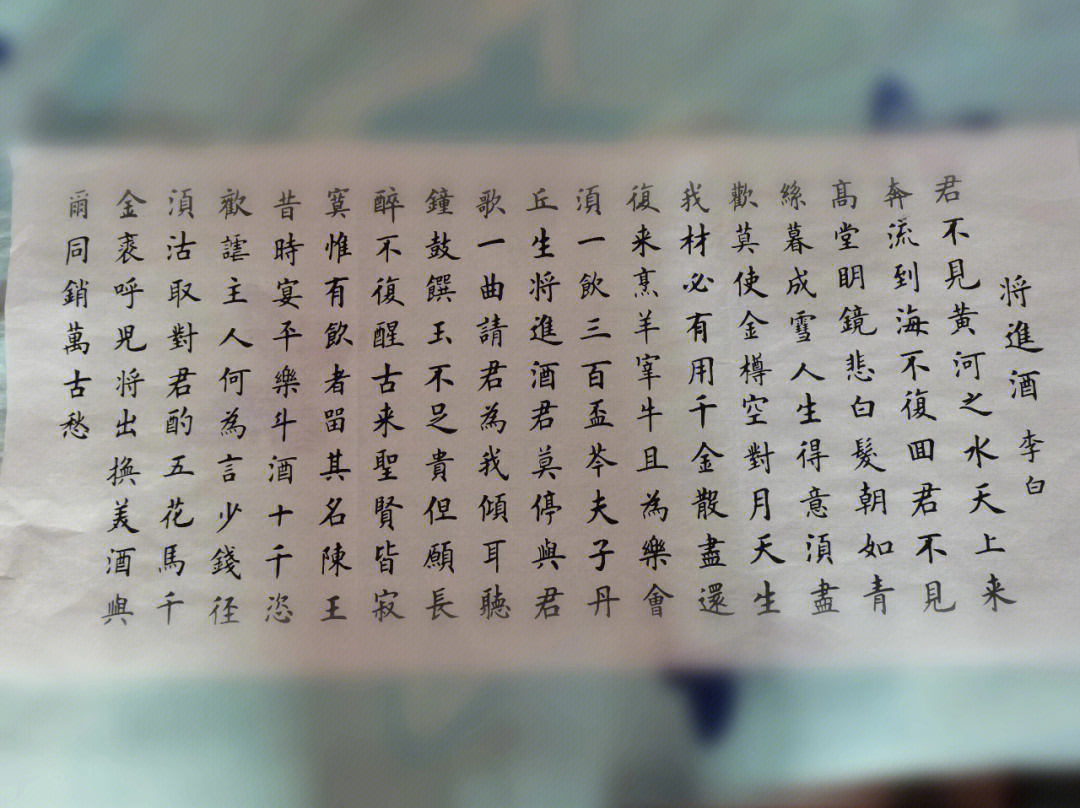 将進酒 李白
君不見黄河之水天上来
奔流到海不復囬君不見
髙堂明鏡悲白髮朝如青
絲暮成雪人生得意湏盡
歡莫使金樽空對月天生
我材必有用千金散盡還
復来烹羊宰牛且為樂會
湏一飲三百盃岑夫子丹
丘生将進酒君莫停與君
歌一曲請君為我傾耳聽
鐘鼓饌玉不足貴但願長
醉不復醒古来聖賢皆寂
寞惟有飲者留其名陳王
昔時宴平樂斗酒十千恣
歡謔主人何為言少錢径
湏沽取對君酌五花馬千
金裘呼児将出換美酒與
爾同銷萬古愁